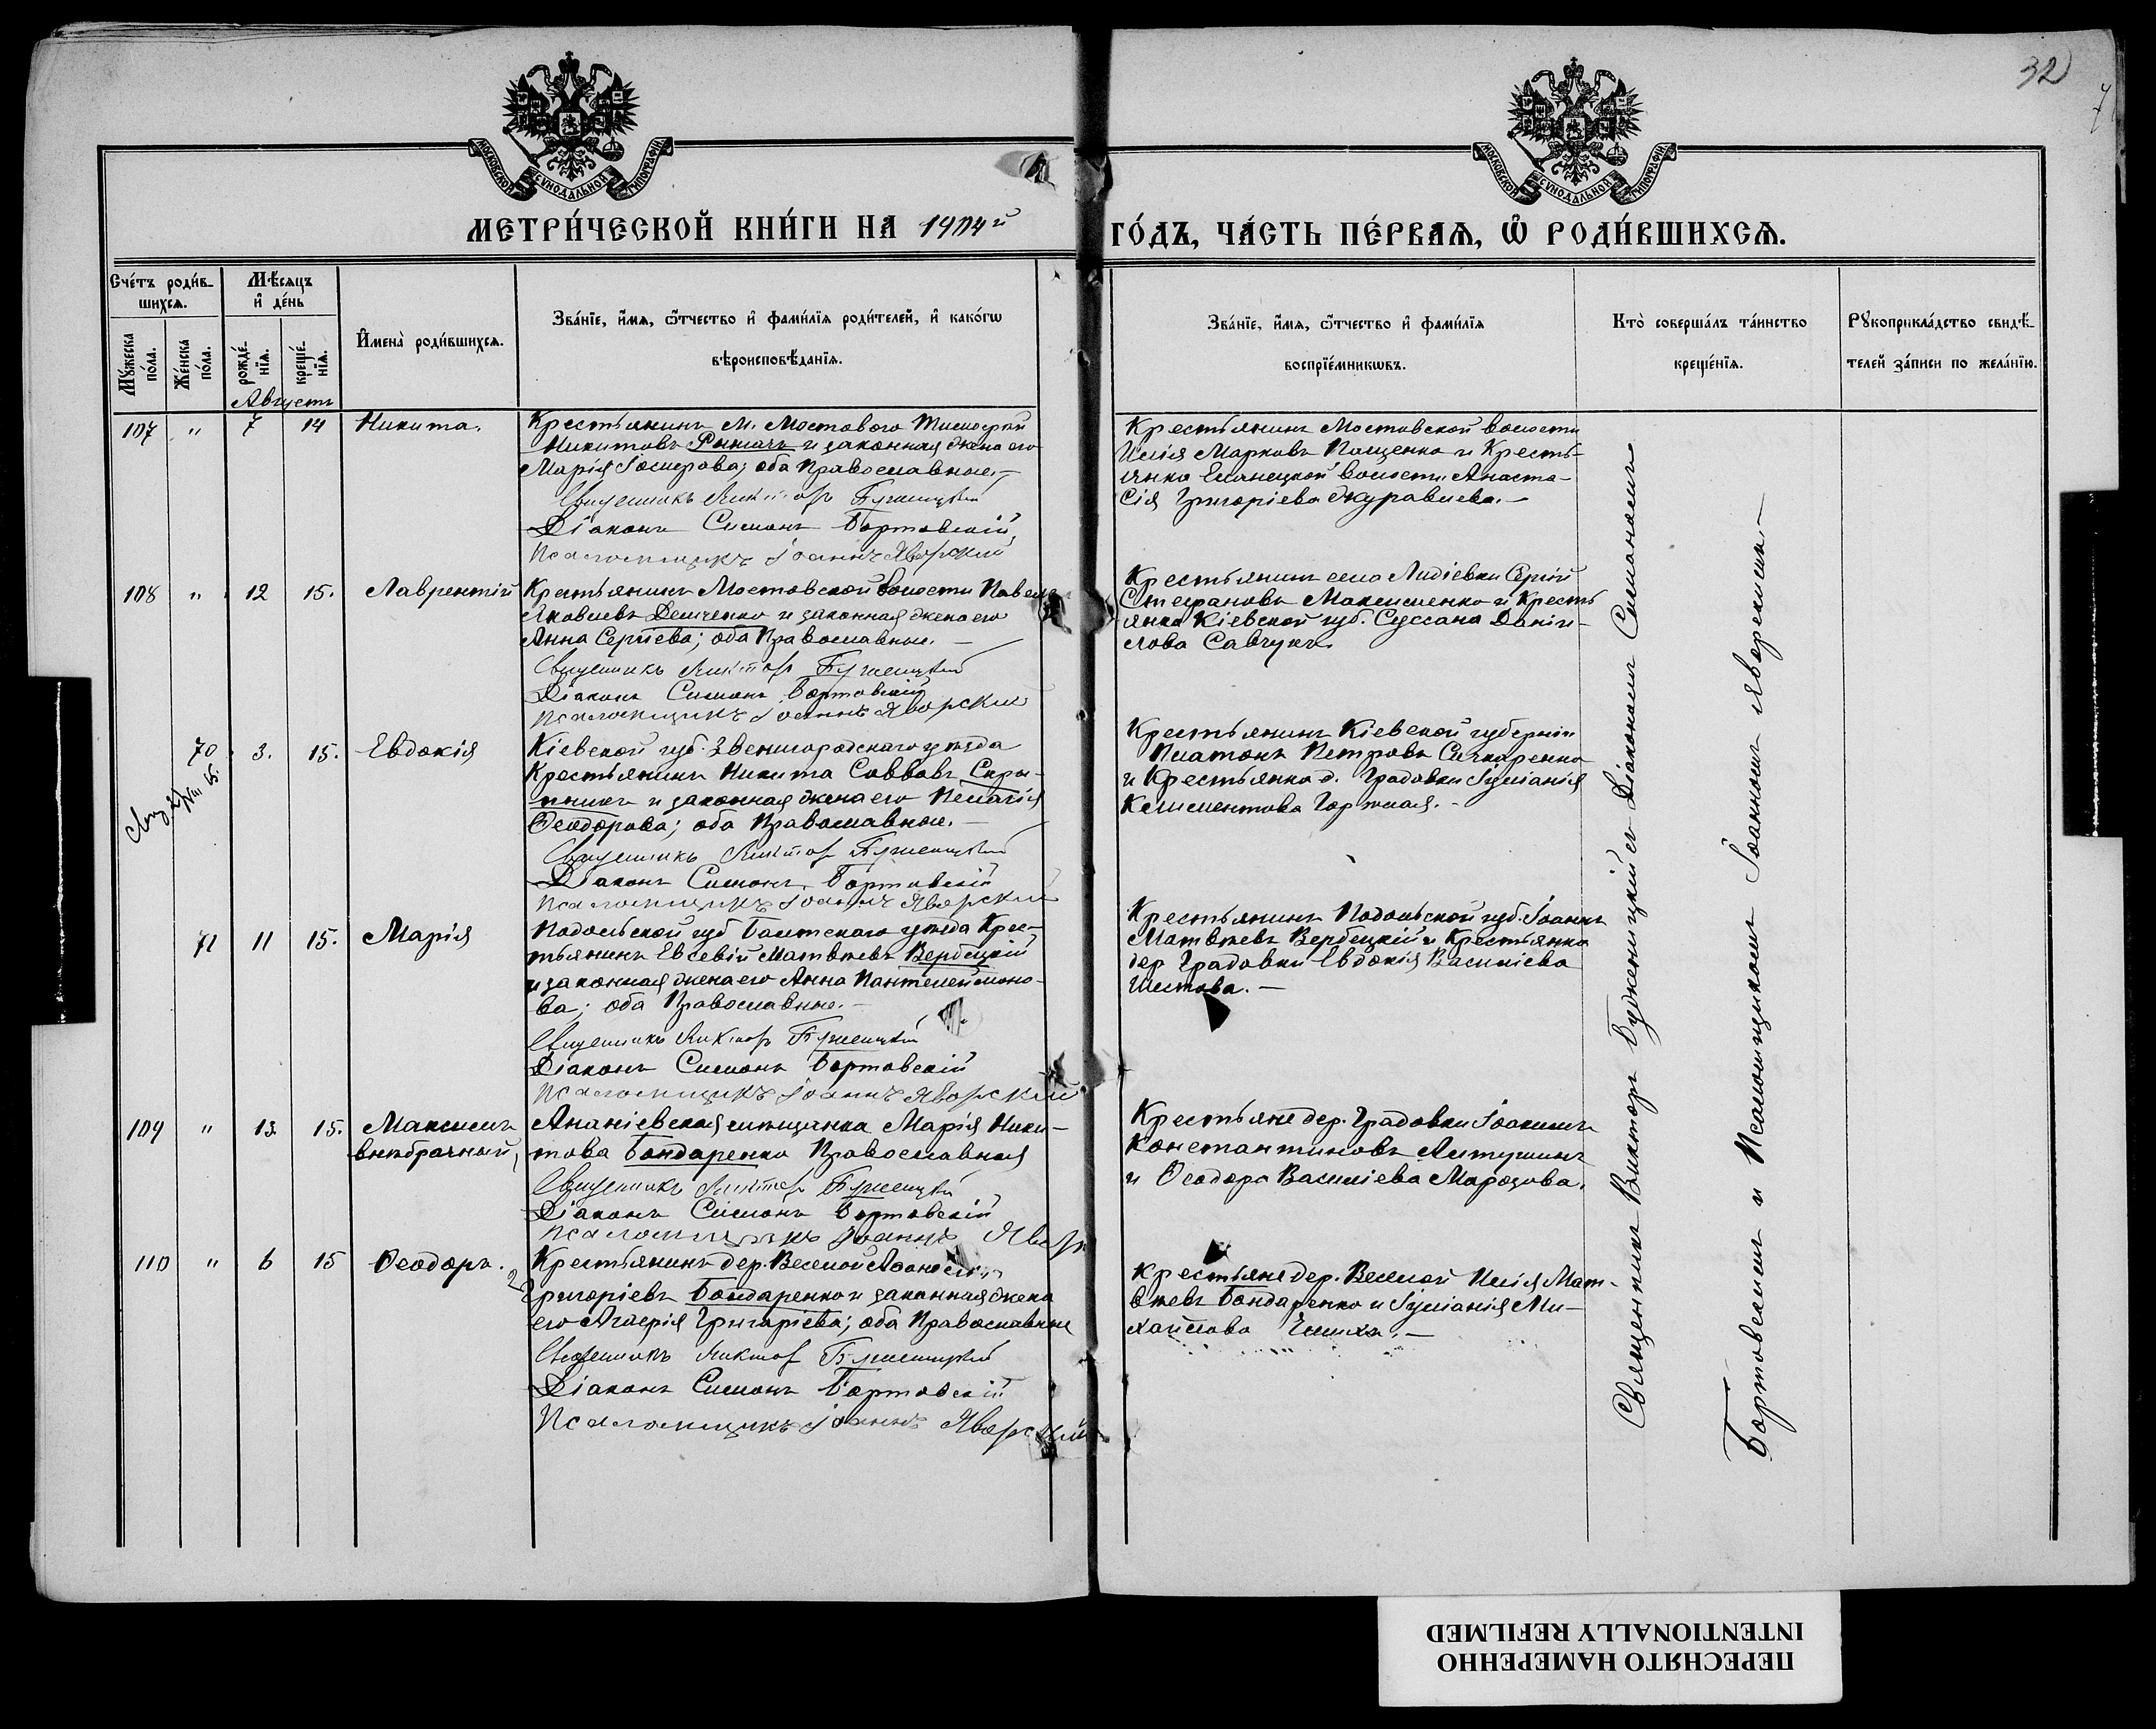 32
МОСКОВСКОЙ СѴНОДАЛЬНОЙ ТИПОГРАФІИ
МОСКОВСКОЙ СѴНОДАЛЬНОЙ ТИПОГРАФІИ
МЕТРИ́ЧЕСКОЙ КНИ́ГИ НА 1904й
ГО́ДЪ, ЧА́СТЬ ПЕ́РВАѦ, Ѡ РОДИ́ВШИХСѦ.
Сче́тъ роди́в-
шихсѧ.
Мꙋжеска по́ла.
Же́нска по́ла.
Мѣ́сѧцъ
и҆ де́нь
рожде́-
нїѧ.
креще́-
нїѧ.
Августъ
И҆мена̀ роди́вшихсѧ.
Зва́нїе, и҆́мѧ, ѻ҆́тчество и҆ фами́лїѧ роди́телей, и҆ како́гѡ
вѣроисповѣ́данїѧ.
Зва́нїе, и҆́мѧ, ѻ҆́тчество и҆ фами́лїѧ
воспрїе́мникѡвъ.
Кто̀ соверша́лъ та́инство
креще́нїѧ.
Рꙋкоприкла́дство свидѣ́-
телей за́писи по жела́нїю.
107 " 7 14 Никита.
Крестьянинъ м. Мостового Тимофей
Никитовъ и законная жена его
Марія Іосифова; оба Православные.-
Священникъ Виктор Буженицкий
Діаконъ Симонъ Бортовскій
Псаломщикъ Іоаннъ Яворский
Крестьянинъ Мостовской волости
Илія Марковъ Пащенко и Кресть-
янка Еланецкой волости Анаста-
сія Григоріева Журавлева.-
108 " 12 15. Лаврентій
Крестьянинъ Мостовской волости Павелъ
Яковлевъ Демченко и законная жена его
Анна Сергіева; оба Православные. -
Священникъ Виктор Буженицкий
Діаконъ Симонъ Бортовскій
Псаломщикъ Іоаннъ Яворский
Крестьянинъ села Лидіевки Сергій
Стефановъ Максименко и Кресть
янка Кіевской губ. Суссана Даніи-
лова Савчукъ.
70 3. 15. Евдокія
Кіевской губ. Звенигородскаго уѣзда
Крестьянинъ Никита Саввовъ Скры-
пникъ и законная жена его Пелагія
Ѳеодорова; оба Православные. -
Священникъ Виктор Буженицкий
Діаконъ Симонъ Бортовскій
Псаломщикъ Іоаннъ Яворский
Крестьянинъ Кіевской губерніи
Платонъ Петровъ
и Крестьянка д. Градовки Іуліанія
Климентова Гортная. -
71 11 15. Марія
Подольской губ Балтскаго уѣзда Крес-
тьянинъ Евсевій Матвѣевъ Вербецкій
и законная жена его Анна Пантелеймоно-
ва; оба Православные. -
Священникъ Виктор Буженицкий
Діаконъ Симонъ Бортовскій
Псаломщикъ Іоаннъ Яворский
Крестьянинъ Подольской губ. Іоаннъ
Матвѣевъ Вербецкій и Крестьянка
дер Градовки Евдокія Василіева
Шестова. -
109 " 13. 15. Максимъ
внѣбрачный,
Ананіевская мѣщанка Марія Ники-
това Бондаренко Православная
Священникъ Виктор Буженицкий
Діаконъ Симонъ Бортовскій
Псаломщикъ Іоаннъ Явор
Крестьяне дер. Градовки Іоакимъ
Константиновъ
и Ѳеодора Василіева Морозова.
110 " 6 15 Ѳеодоръ.
Крестьянинъ дер. Веселой Аѳанасій
Григоріевъ Бондаренко и законная жена
его Гликерія Григоріева; оба Православные
Священникъ Виктор Буженицкий
Діаконъ Симонъ Бортовскій
Псаломщикъ Іоаннъ Яворский
Крестьяне дер. Веселой Илія Мат-
вѣевъ Бондаренко и Іуліанія Ми-
хайлова
Священникъ Викторъ Буженицкій съ Діакономъ Симономъ
Бортовскимъ и Псаломщикомъ Іоанномъ Яворскимъ.-
ПЕРЕСНЯТО НАМЕРЕННО
INTENTIONALLY REFILMED